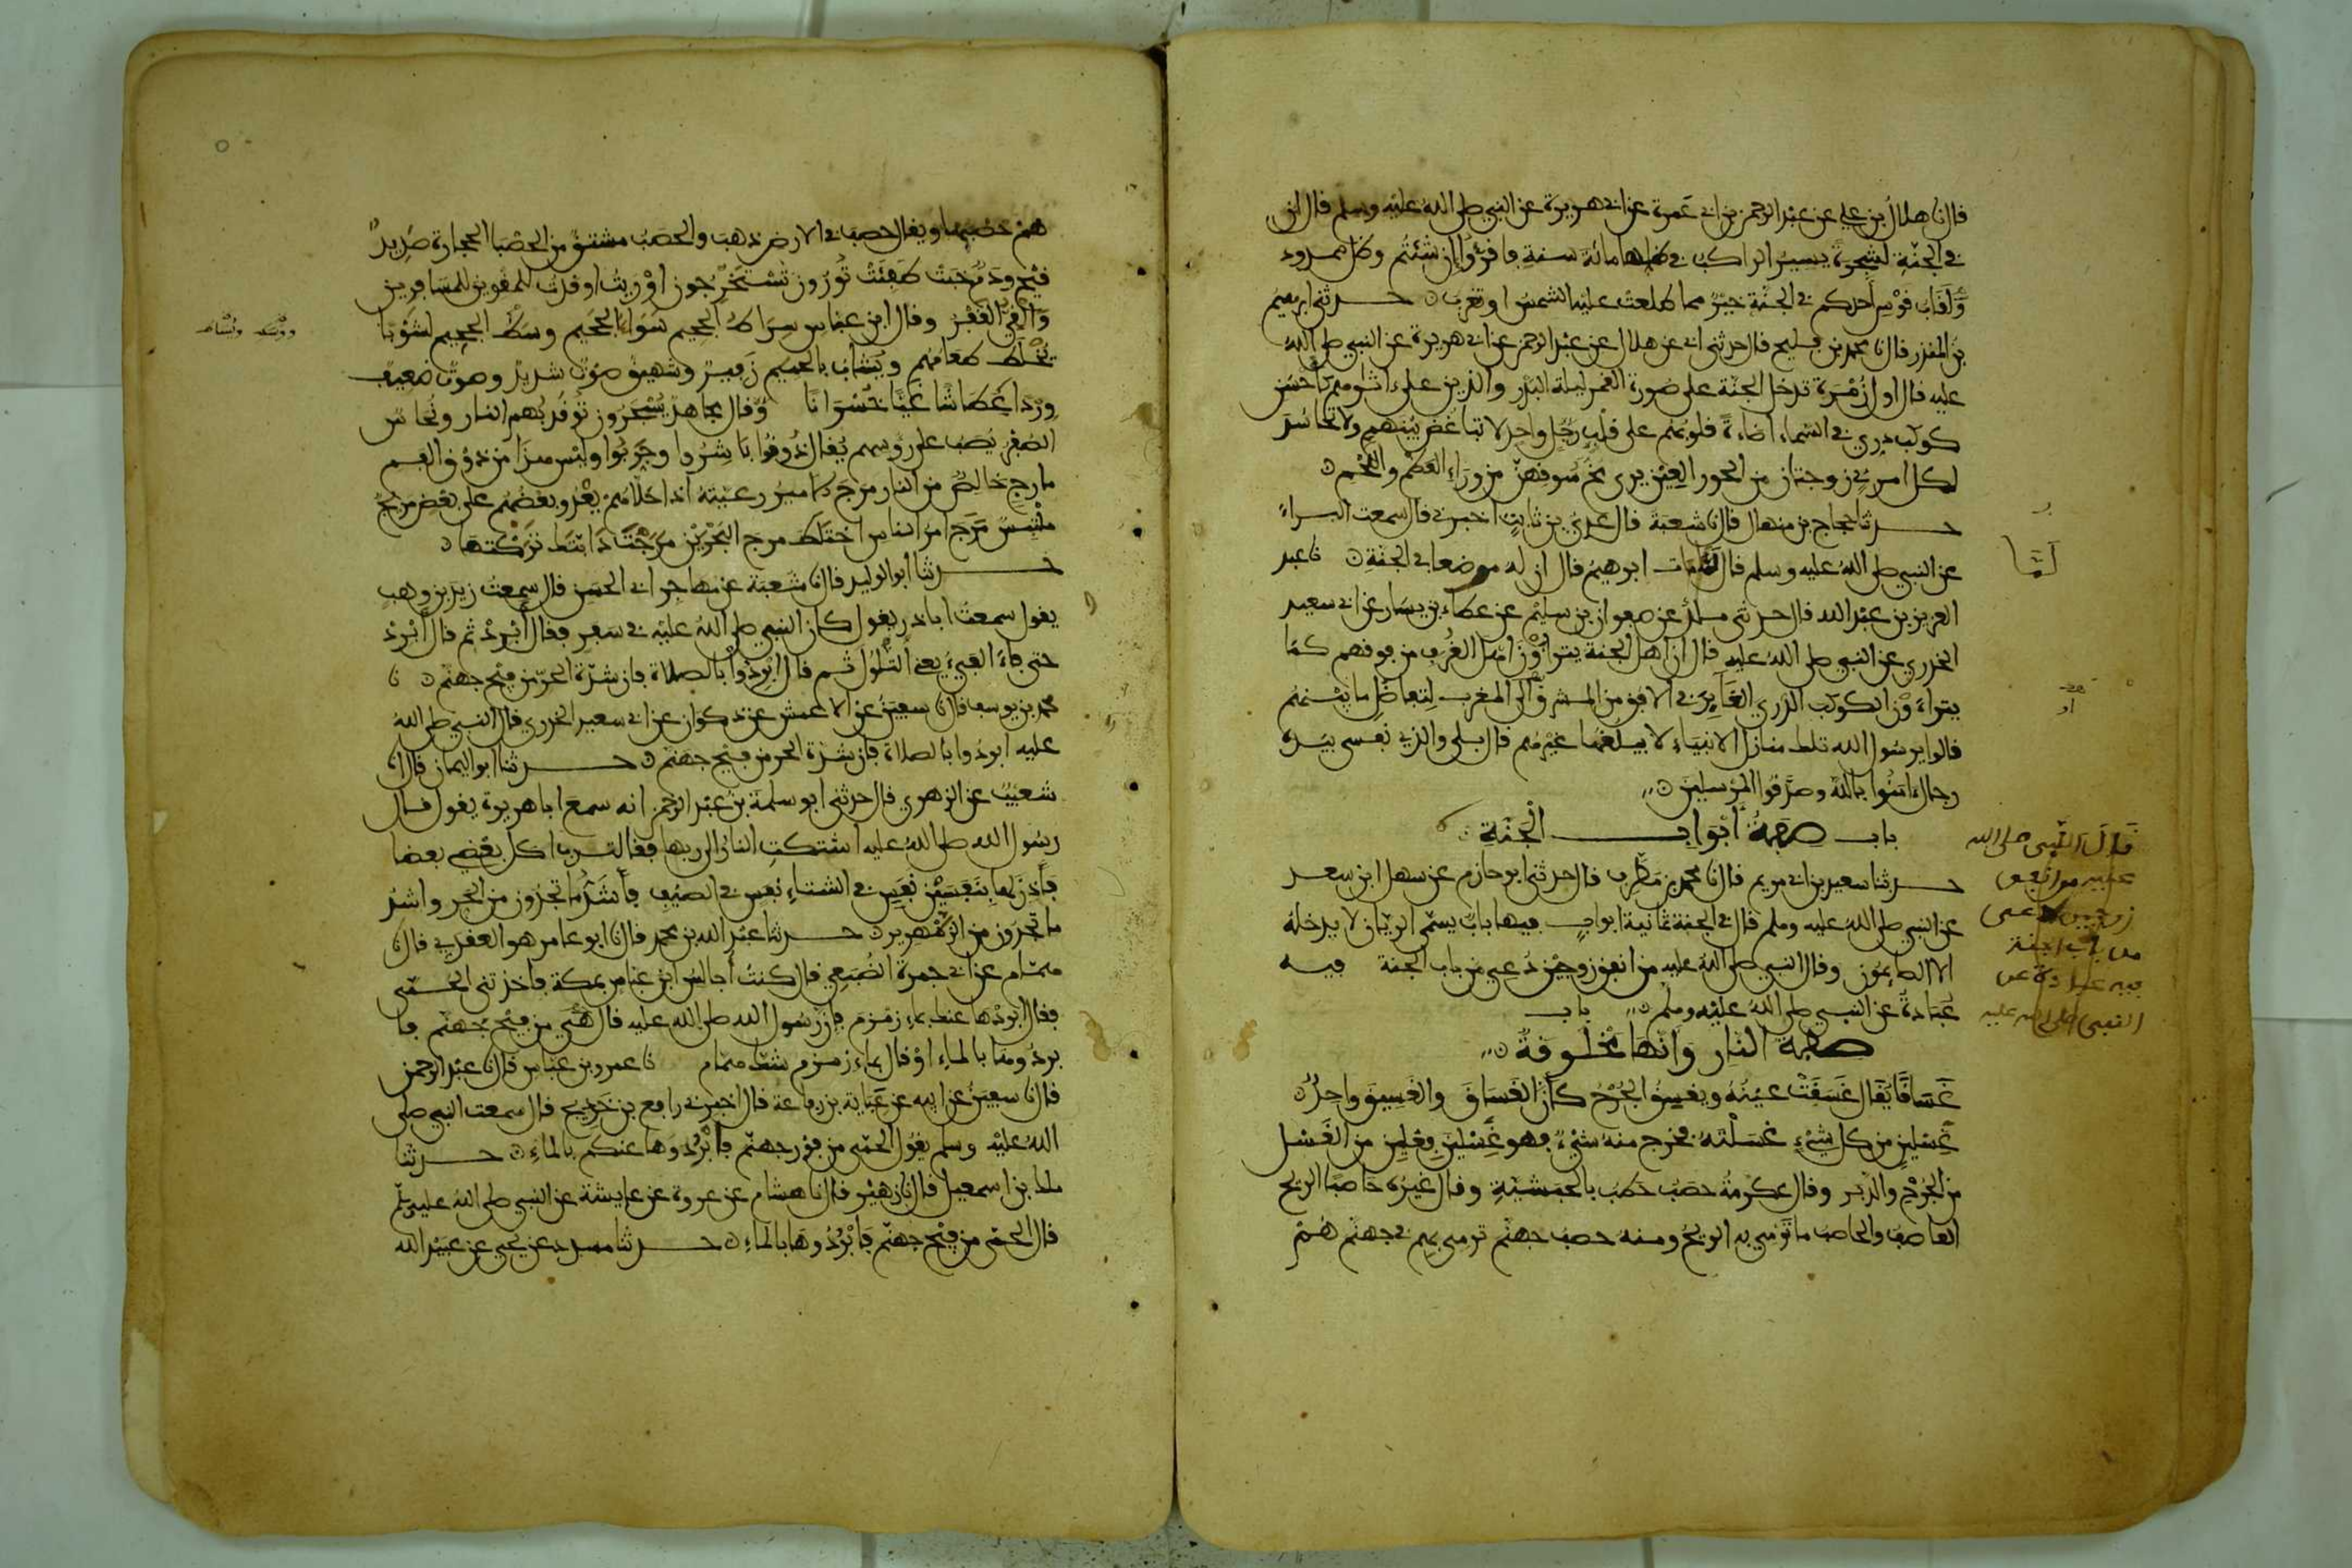 قال نا هلال بن علي عن عبد الرحمن بن ابي عمرة عن ابي هريرة عن النبي صلى الله عليه وسلم قال ان
في الجنة لشجرة يسير الراكب في ظلها مائة سنة فاقرؤا ان شئتم وظل ممدود
ولقاب قوس احدكم في الجنة خير مما طلعت عليه الشمس او تغرب حدثني ابرهيم
بن المنذر قال نا محمد بن فليح قال حدثني ابي عن هلال عن عبد الرحمن عن ابي هريرة عن النبي صلى الله
عليه قال اول زمرة تدخل الجنة على صورة القمر ليلة البدر والذين على اثارهم كأحسن
كوكب دري في السماء اضاءة قلوبهم على قلب رجل واحد لا تباغض بينهم ولا تحاسد
لكل امرئ زوجتان من الحور العين يرى مخ سوقهن من وراء العظم واللحم
حدثنا حجاج بن منهال قال نا شعبة قال عدي بن ثابت اخبرني قال سمعت البراء
عن النبي صلى الله عليه وسلم قال لما مات ابرهيم قال ان له مرضعا في الجنة نا عبد
العزيز بن عبد الله قال حدثني ملك عن صفوان بن سليم عن عطاء بن يسار عن ابي سعيد
الخدري عن النبي صلى الله عليه قال ان اهل الجنة يتراءون اهل الغرف من فوقهم كما
يتراءون الكوكب الدري الغابر في الافق من المشرق والى المغرب لتفاضل ما بينهم
قالوا يرسول الله تلك منازل الانبياء لا يبلغها غيرهم قال بلى والذي نفسي بيده
رجال امنوا بالله وصدقوا المرسلين
باب صفة ابواب الجنة
حدثنا سعيد بن ابي مريم قال نا محمد بن مطرف قال حدثني ابو حازم عن سهل ابن سعد
عن النبي صلى الله عليه وسلم قال في الجنة ثمانية ابواب فيها باب يسمى الريان لا يدخله
الا الصائمون وقال النبي صلى الله عليه من انفق زوجين دعي من باب الجنة فيه
عبادة عن النبي صلى الله عليه وسلم باب
صفة النار وانها مخلوقة
غساقا يقال غسقت عينه ويغسق الجرح كأن الغساق والغسيق واحد
غسلين من كل شيء غسلته فخرج منه شيء فهو غسلين فعلين من الغسل
من الجرح والدبر وقال عكرمة حصب حطب بالحبشية وقال غيره حاصبا الريح
العاصف والحاصب ما ترمي به الريح ومنه حصب جهنم ترمى بهم في جهنم هم
لما
قال النبي صلى الله
عليه من انفق
زوجين دعي
من باب الجنة
فيه عبادة عن
النبي صلى الله عليه
هم حصبها ويقال حصب في الارض ذهب والحصب مشتق من الحصبا الحجارة صديد
قيح ودم خبت طفئت تورون تستخرجون اوريت اوقدت للمقوين للمسافرين
والقي القفر وقال ابن عباس صراط الجحيم سواء الجحيم وسط الجحيم لشوبا
يخلط طعامهم ويشاب بالحميم زفير وشهيق صوت شديد وصوت ضعيف
وردا عطاشا غيا خسرانا وقال مجاهد يسجرون توقد بهم النار ونحاس
الصفر يصب على روسهم يقال ذوقوا باشروا وجربوا وليس هذا من ذوق الفم
مارج خالص من النار مرج الامير رعيته اذا خلاهم يعدو بعضهم على بعض مريج
ملتبس مرج امر الناس اختلط مرج البحرين مرجت دابتك تركتها
حدثنا ابو الوليد قال نا شعبة عن مهاجر ابي الحسن قال سمعت زيد بن وهب
يقول سمعت ابا ذر يقول كان النبي صلى الله عليه في سفر فقال ابرد ثم قال ابرد
حتى فاء الفيء يعني التلول ثم قال ابردوا بالصلاة فان شدة الحر من فيح جهنم نا
محمد بن يوسف قال نا سفين عن الاعمش عن ذكوان عن ابي سعيد الخدري قال النبي صلى الله
عليه ابردوا بالصلاة فان شدة الحر من فيح جهنم حدثنا ابو اليمان قال انا
شعيب عن الزهري قال حدثني ابو سلمة بن عبد الرحمن انه سمع ابا هريرة يقول قال
رسول الله صلى الله عليه اشتكت النار الى ربها فقالت رب اكل بعضي بعضا
فأذن لها بنفسين نفس في الشتاء نفس في الصيف فأشد ما تجدون من الحر واشد
ما تجدون من الزمهرير حدثنا عبد الله بن محمد قال نا ابو عامر هو العقدي قال نا
همام عن ابي جمرة الضبعي قال كنت اجالس ابن عباس بمكة فأخذتني الحمى
فقال ابردها عنك بماء زمزم فان رسول الله صلى الله عليه قال هي من فيح جهنم فا
بردوها بالماء او قال بماء زمزم شك همام نا عمرو بن عباس قال نا عبد الرحمن
قال نا سفين عن ابيه عن عباية بن رفاعة قال اخبرني رافع بن خديج قال سمعت النبي صلى
الله عليه وسلم يقول الحمى من فور جهنم فابردوها عنكم بالماء حدثنا
ملك بن اسمعيل قال نا زهير قال نا هشام عن عروة عن عايشة عن النبي صلى الله عليه وسلم
قال الحمى من فيح جهنم فابردوها بالماء حدثنا مسدد عن يحيى عن عبيد الله